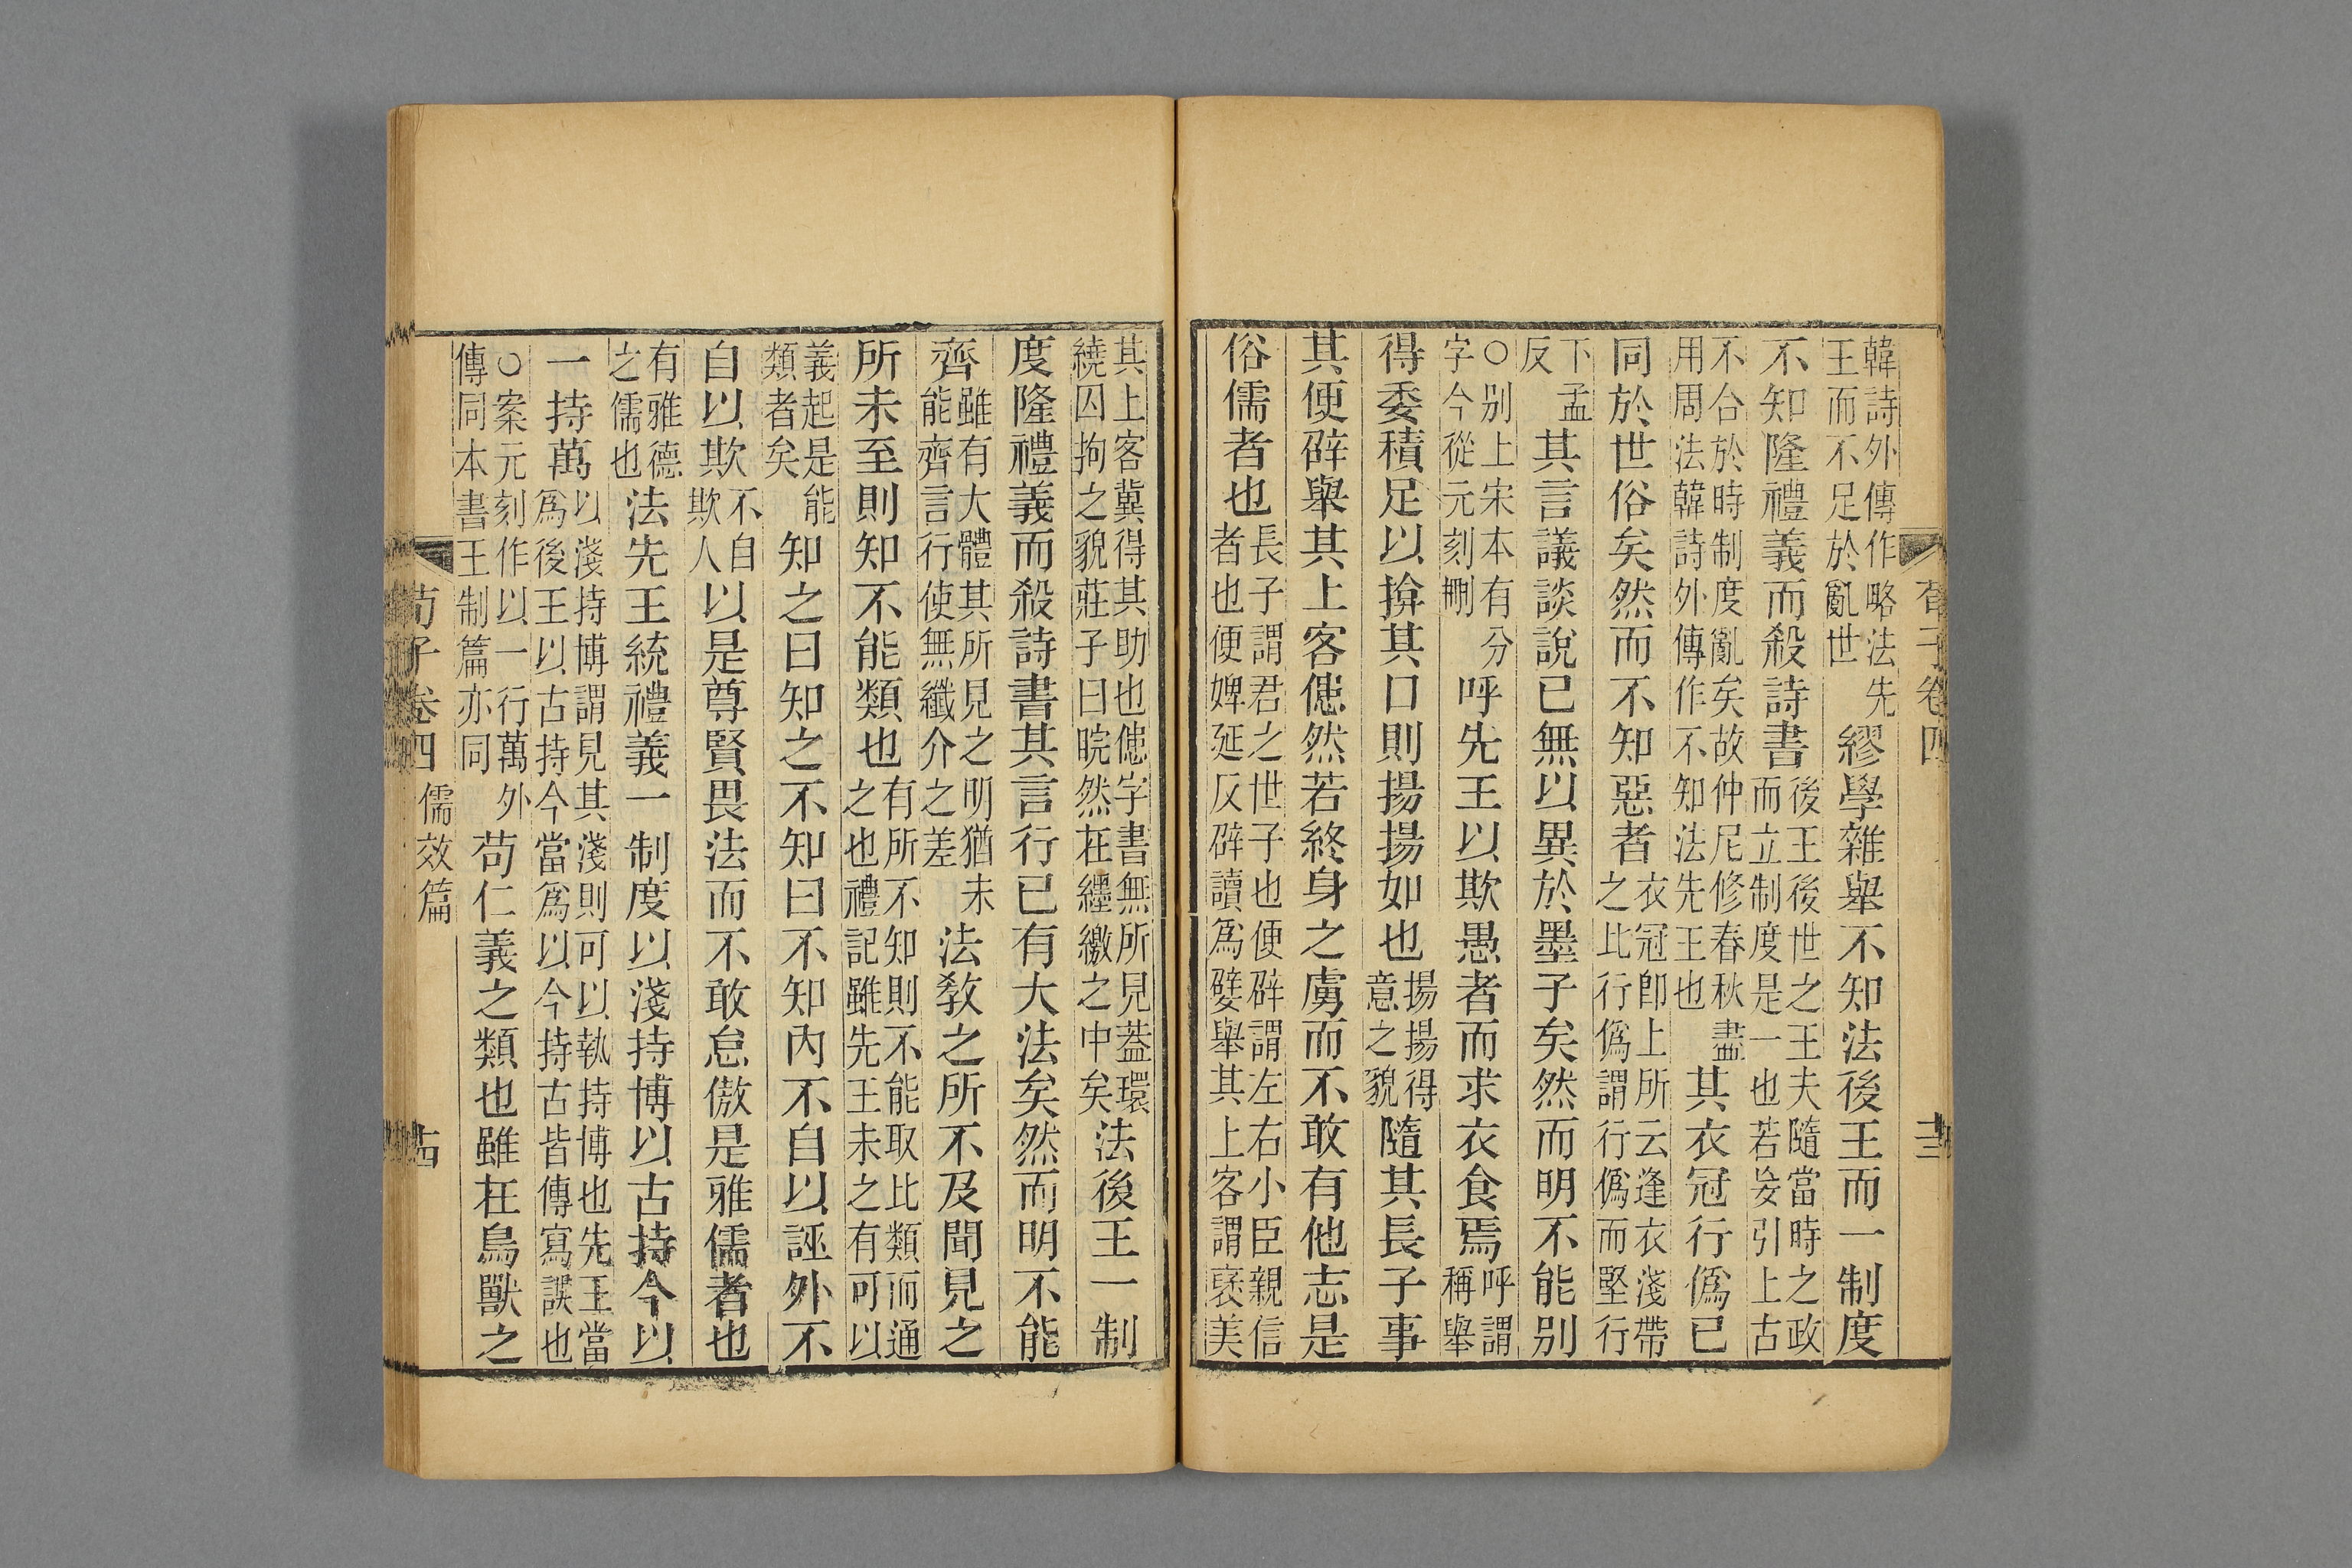 荀子卷四 十三
韓詩外傳作略法先王而不足於亂世繆學雜舉不知法後王而一制度
不知隆禮義而殺詩書後王後世之王夫隨當時之政而立制度是一也若妄引上古
不合於時制度亂矣故仲尼修春秋盡用周法韓詩外傳作不知法先王也其衣冠行僞已
同於世俗矣然而不知惡者衣冠卽上所云逢衣淺帶之比行僞謂行僞而堅行
下孟反其言議談說已無以異於墨子矣然而明不能別
○別上宋本有分字今從元刻刪呼先王以欺愚者而求衣食焉呼謂稱舉
得委積足以揜其口則揚揚如也揚揚得意之貌隨其長子事
其便辟舉其上客僡然若終身之虜而不敢有他志是
俗儒者也長子謂君之世子也便辟謂左右小臣親信者也便婢延反辟讀爲嬖舉其上客謂襃美
其上客冀得其助也僡字書無所見蓋環繞囚拘之貌莊子曰睆然在纆繳之中矣法後王一制
度隆禮義而殺詩書其言行已有大法矣然而明不能
齊雖有大體其所見之明猶未能齊言行使無纖介之差法教之所不及聞見之
所未至則知不能類也有所不知則不能取比類而通之也禮記雖先王未之有可以
義起是能類者矣知之曰知之不知曰不知內不自以誣外不
自以欺不自欺人以是尊賢畏法而不敢怠傲是雅儒者也
有雅德之儒也法先王統禮義一制度以淺持博以古持今以
一持萬以淺持博謂見其淺則可以執持博也先王當爲後王以古持今當爲以今持古皆傳寫誤也
○案元刻作以一行萬外傳同本書王制篇亦同苟仁義之類也雖在鳥獸之
荀子卷四 儒效篇 十四